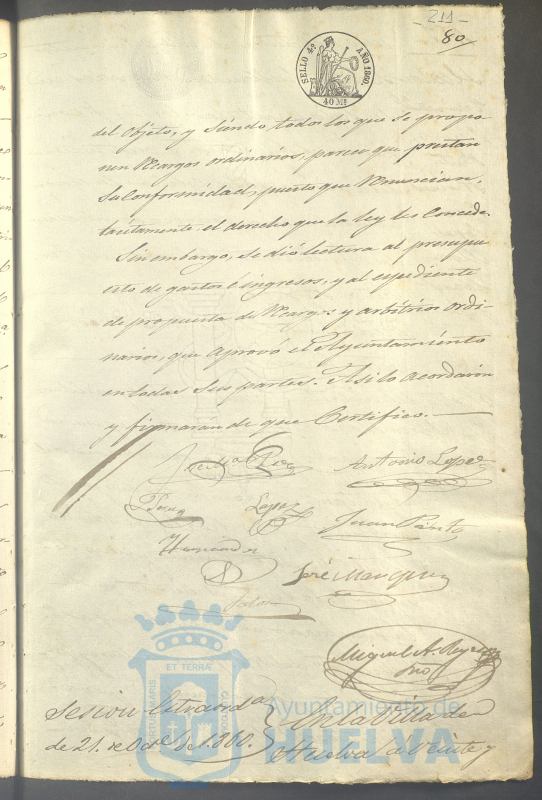 - 211 -
80
SELLO 4º AÑO 1860.
40 Ms
del Objeto, y siendo todos los que se propo
nen Recargos ordinarios, parece que prestan
su conformidad, puesto que renuncian,
tácitamente el derecho que la ley les concede.
Sin embargo, se dió lectura al presupu
esto de gastos é ingresos, y al espediente
de propuesta de Recargos y arbitrios ordi
narios, que aprovó el Ayuntamiento
en todas sus partes. Asi lo acordaron
y firmaron de que Certifico.
Antonio Lopez
Perez Lopez Juan Pinto
José Marquez
Miguel A.
Srio
ET TERRÆ
PORTUS MARIS
CUSTODIA
Ayuntamiento de
HUELVA
Sesion Extraorda
de 21 de Octe de 1.860.
En la Villa de
Huelva a veinte y